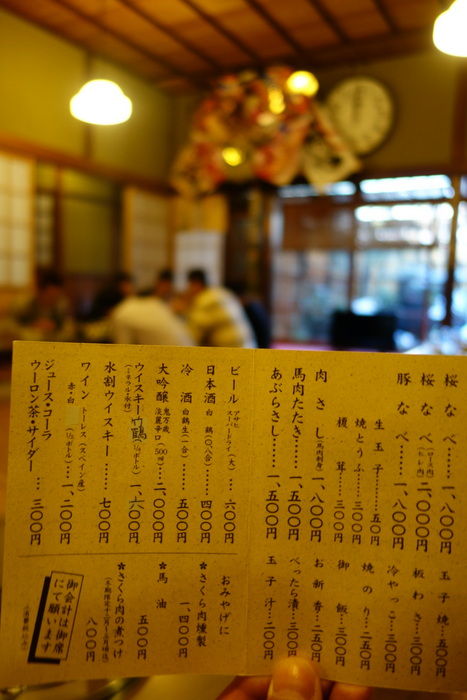 桜なべ……一、八〇〇円
桜なべ(ロース肉)(ヒレ肉)……二、〇〇〇円
豚なべ……一、八〇〇円
生玉子……五〇円
焼とうふ……三〇〇円
榎茸……三〇〇円
肉さし(馬肉刺身)……一、八〇〇円
馬肉たたき……一、五〇〇円
あぶらさし……一、五〇〇円
玉子焼…五〇〇円
板わさ…五〇〇円
冷やっこ…三〇〇円
焼のり…二五〇円
御飯…三〇〇円
お新香…二五〇円
べったら漬…三〇〇円
玉子汁…二〇〇円
ビール アサヒスーパードライ(大)…六〇〇円
日本酒 白鶴(〇.八合)…四〇〇円
冷酒 白鶴生(一合)…五〇〇円
大吟醸 鬼万歳 淡麗辛口(500ml)…二、〇〇〇円
ウイスキー 竹鶴(1/2ボトル)(ミネラル氷付)…一、六〇〇円
水割ウイスキー……七〇〇円
ワイン トーレス(スペイン産)
赤・白(1/2ボトル)…一、二〇〇円
ジュース・コーラ
ウーロン茶・サイダー…三〇〇円
おみやげに
*さくら肉燻製
一、四〇〇円
*馬油
五〇〇円
*さくら肉の煮つけ
八〇〇円
御会計は御席
にて願います